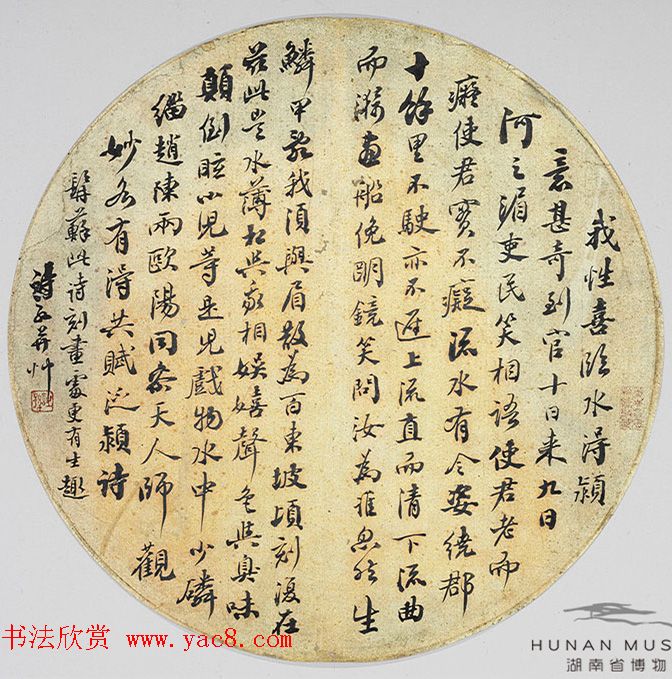 我性喜臨水得潁
意甚奇到官十日来九日
河之湄吏民笑相語使君老而
癡使君實不癡流水有令姿繞郡
十餘里不駛亦不遲上流直而清下流曲
而漪畫船俛明鏡笑問汝為誰忽然生
鱗甲亂我須與眉散為百東坡頃刻復在
茲此豈水薄相與我相娛嬉聲色與臭味
顛倒眩小兒等是兒戲物水中少磷
緇趙陳兩歐陽同參天人師觀
妙各有得共賦泛潁詩
髯蘇此詩刻畫處更有生趣
詩孫
书法欣赏 www.yac8.com
HUNAN MUS
湖南省博物